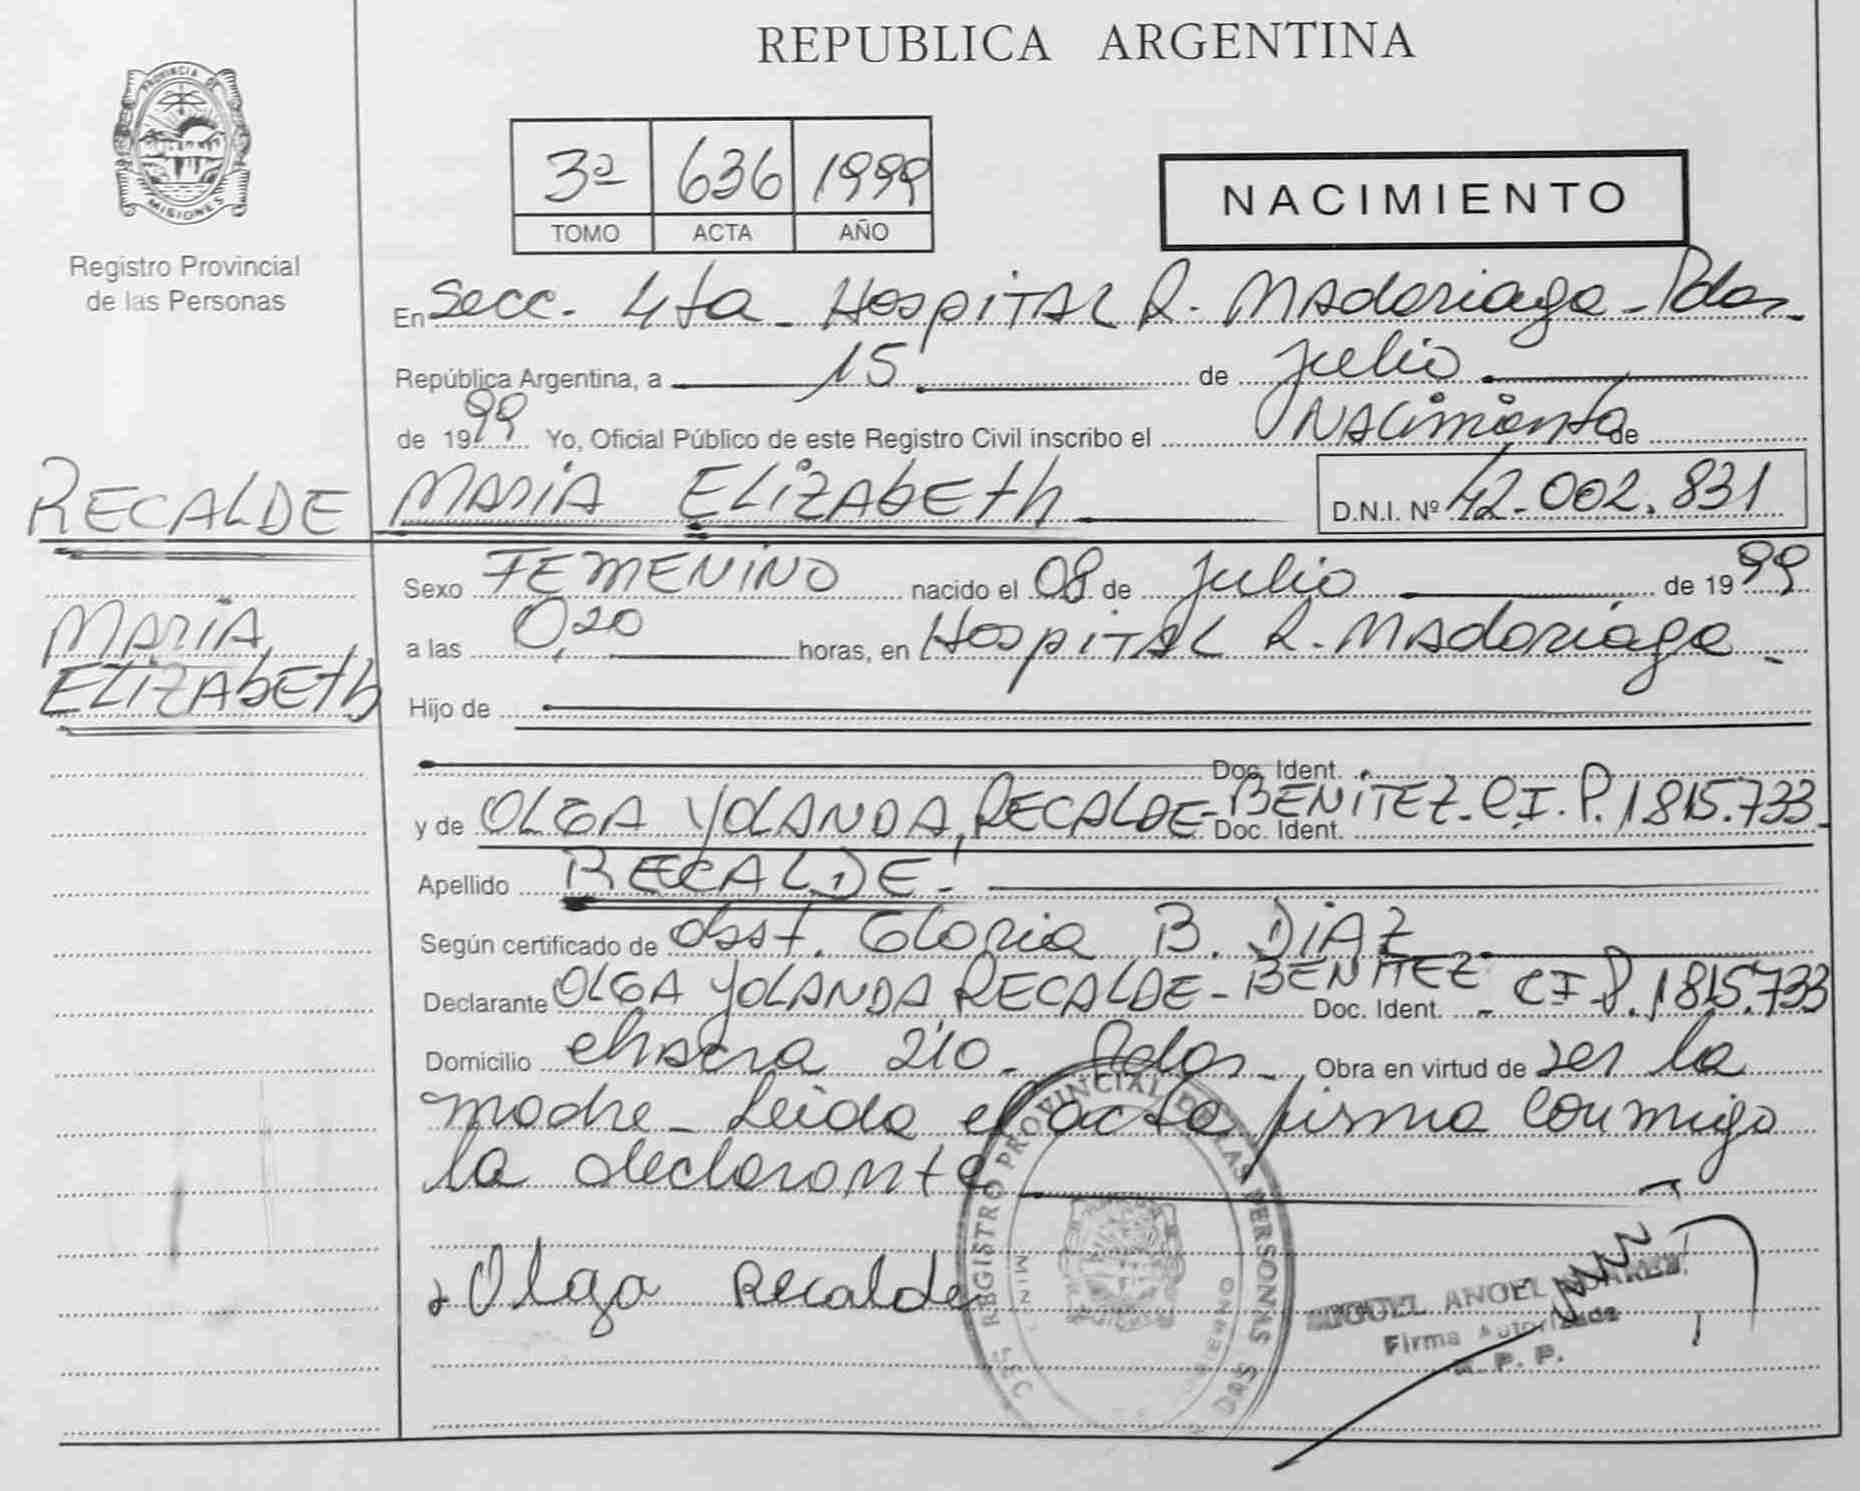 REPUBLICA ARGENTINA
PROVINCIA DE
MISIONES
Registro Provincial
de las Personas
3ª 636 1999
TOMO ACTA AÑO
NACIMIENTO
En Secc. 4ta - Hospital R. Madariaga - Pdas.
República Argentina, a 15 de Julio
de 1999 Yo, Oficial Público de este Registro Civil inscribo el Nacimiento de
RECALDE MARIA ELIZABETH D.N.I. Nº 42.002.831
MARIA
ELIZABETH
Sexo FEMENINO nacido el 08 de Julio de 1999
a las 0,20 horas, en Hospital R. Madariaga -
Hijo de
Doc. Ident.
y de OLGA YOLANDA RECALDE - BENITEZ - C.I.P. 1815.733 - Doc. Ident.
Apellido RECALDE
Según certificado de obst. Gloria B. DIAZ
Declarante OLGA YOLANDA RECALDE - BENITEZ Doc. Ident. - C I P. 1815.733
Domicilio chacra 210 - Pdas - Obra en virtud de ser la
madre - Leida el acta firma conmigo
la declarante
Olga Recalde
REGISTRO PROVINCIAL DE LAS PERSONAS
MIGUEL ANGEL
Firma Autorizada
R. P. P.